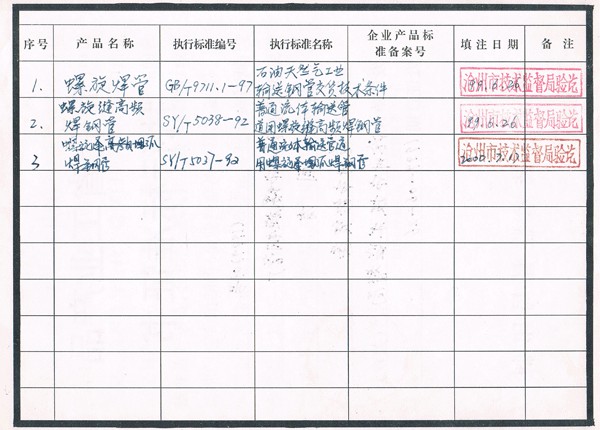 序号 产品名称 执行标准编号 执行标准名称 企业产品标准备案号 填注日期 备注
1. 螺旋焊管 GB/T9711.1-97 石油天然气工业
输送钢管交货技术条件 沧州市技术监督局验讫
2. 螺旋缝高频
焊钢管 SY/T5038-92 普通流体输送管
道用螺旋缝高频焊钢管 沧州市技术监督局验讫
3 SY/T5037-92 普通流体输送管道
用螺旋缝埋弧焊钢管 沧州市技术监督局验讫